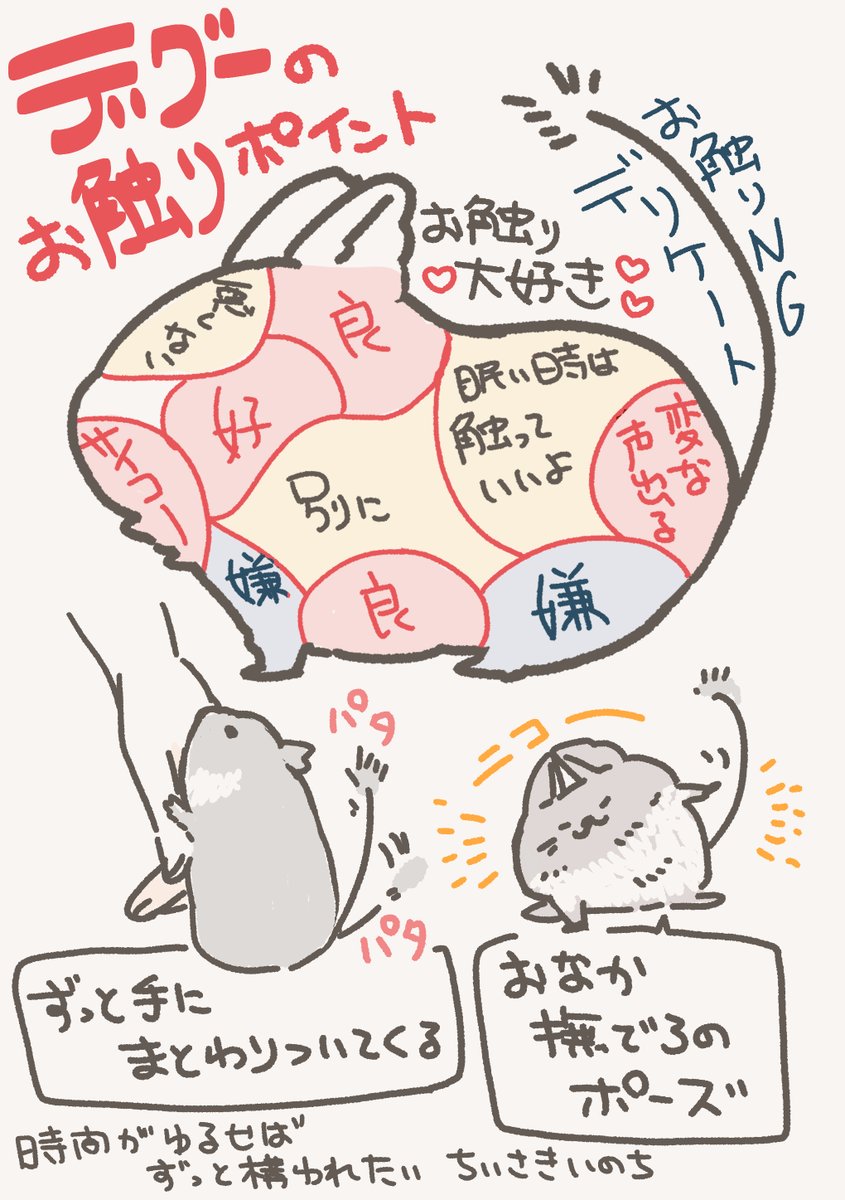 デグーの
お触りポイント
お触り
大好き
お触りNG
デリケート
良
好
キャコー
別に
眠い時は
触って
いいよ
変な
声出る
嫌
良
嫌
パタ
パタ
ニコ
ずっと手に
まとわりついてくる
おなか
撫でろの
ポーズ
時間がゆるせば
ずっと構われたい ちいさきいのち